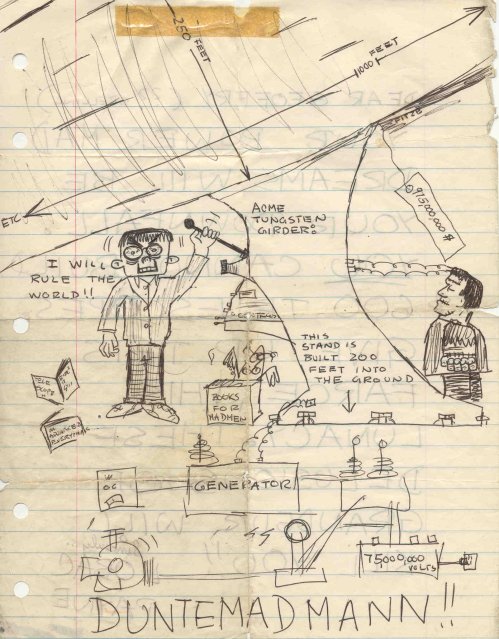 250 FEET
1000 FEET
ETC
ACME
TUNGSTEN
GIRDER
I WILL
RULE THE
WORLD!!
THIS
STAND IS
BUILT 200
FEET INTO
THE GROUND
BOOKS
FOR
MADMEN
GENERATOR
75,000,000
VOLTS
DUNTEMADMANN!!